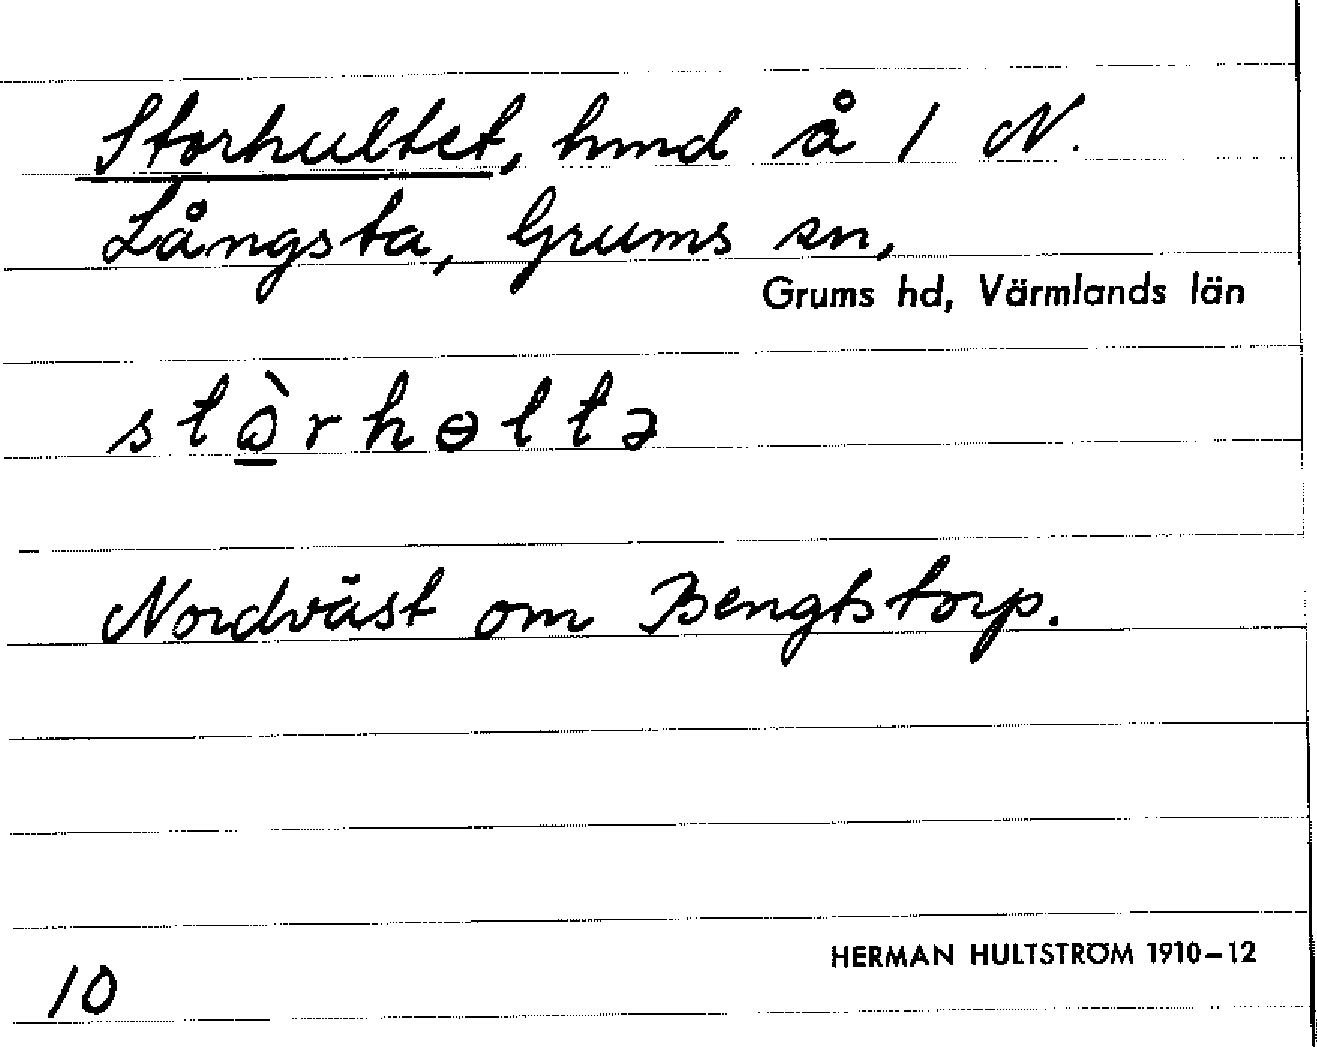 Storhultet, hmd å 1 N.
Långsta, Grums sn,
Grums hd, Värmlands län
stɷ̱̀rhɵltə
Nordväst om Bengtstorp.
10
HERMAN HULTSTRÖM 1910–12